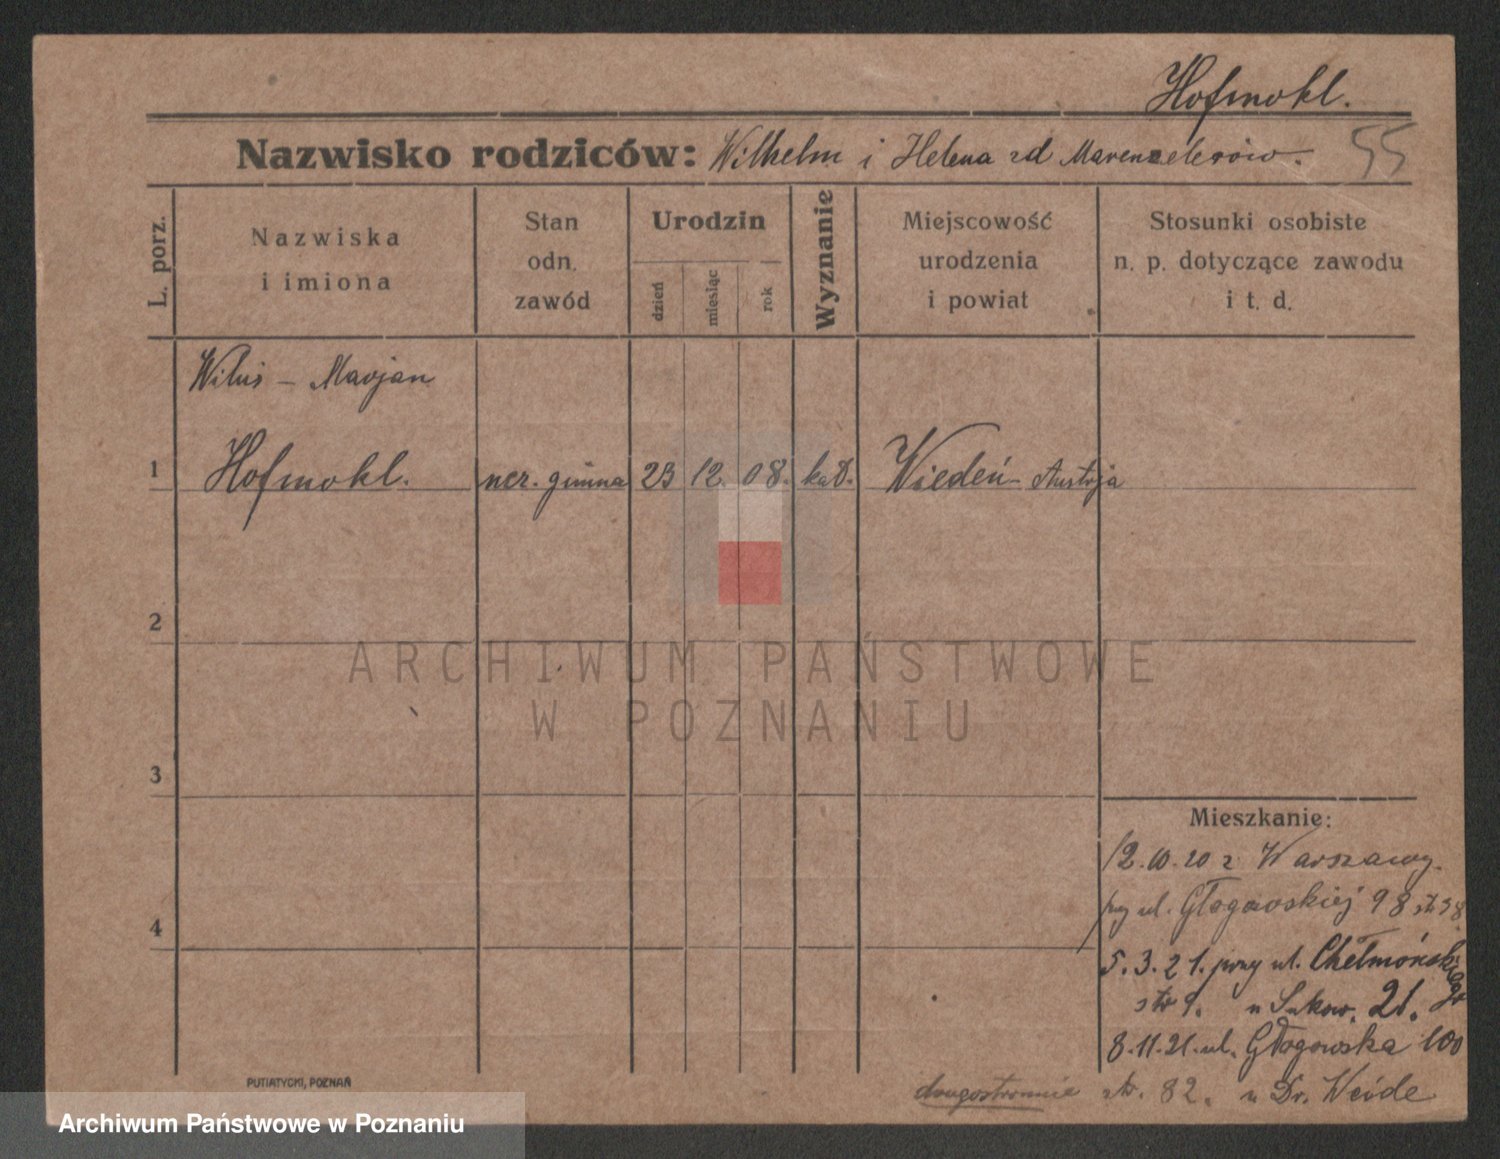 Hofmokl.
Nazwisko rodziców: Wilhelm i Helena zd Marenzelerów. 55
L. porz.
Nazwiska i imiona
Stan odn. zawód
Urodzin
dzień
miesiąc
rok
Wyznanie
Miejscowość urodzenia i powiat
Stosunki osobiste n. p. dotyczące zawodu i t. d.
Wiluś - Marjan
1 Hofmokl. ucz. gimna 23 12. 08. kat. Wiedeń - Austrja
2
ARCHIWUM PAŃSTWOWE
W POZNANIU
3
Mieszkanie:
12.10.20 z Warszawy.
przy ul. Głogowskiej 98 str 38.
4
5.3.21. przy ul. Chełmońskiego
str 9. u 21.
8.11.21. ul. Głogowska 100
drugostronnie str. 82. u Dr. Weide
PUTIATYCKI, POZNAŃ
Archiwum Państwowe w Poznaniu